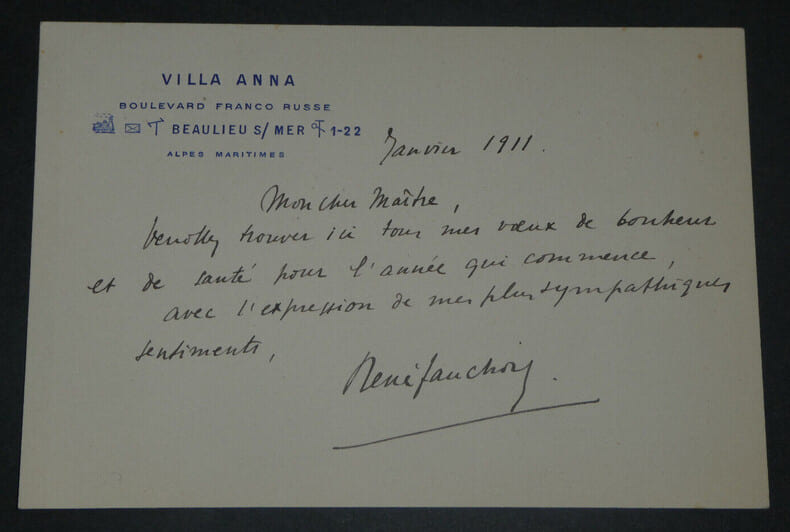 VILLA ANNA
BOULEVARD FRANCO RUSSE
BEAULIEU S/ MER 1-22
ALPES MARITIMES
Janvier 1911.
Mon cher Maître,
Veuillez trouver ici tous mes vœux de bonheur
et de santé pour l'année qui commence,
avec l'expression de mes plus sympathiques
sentiments,
René Fauchois.